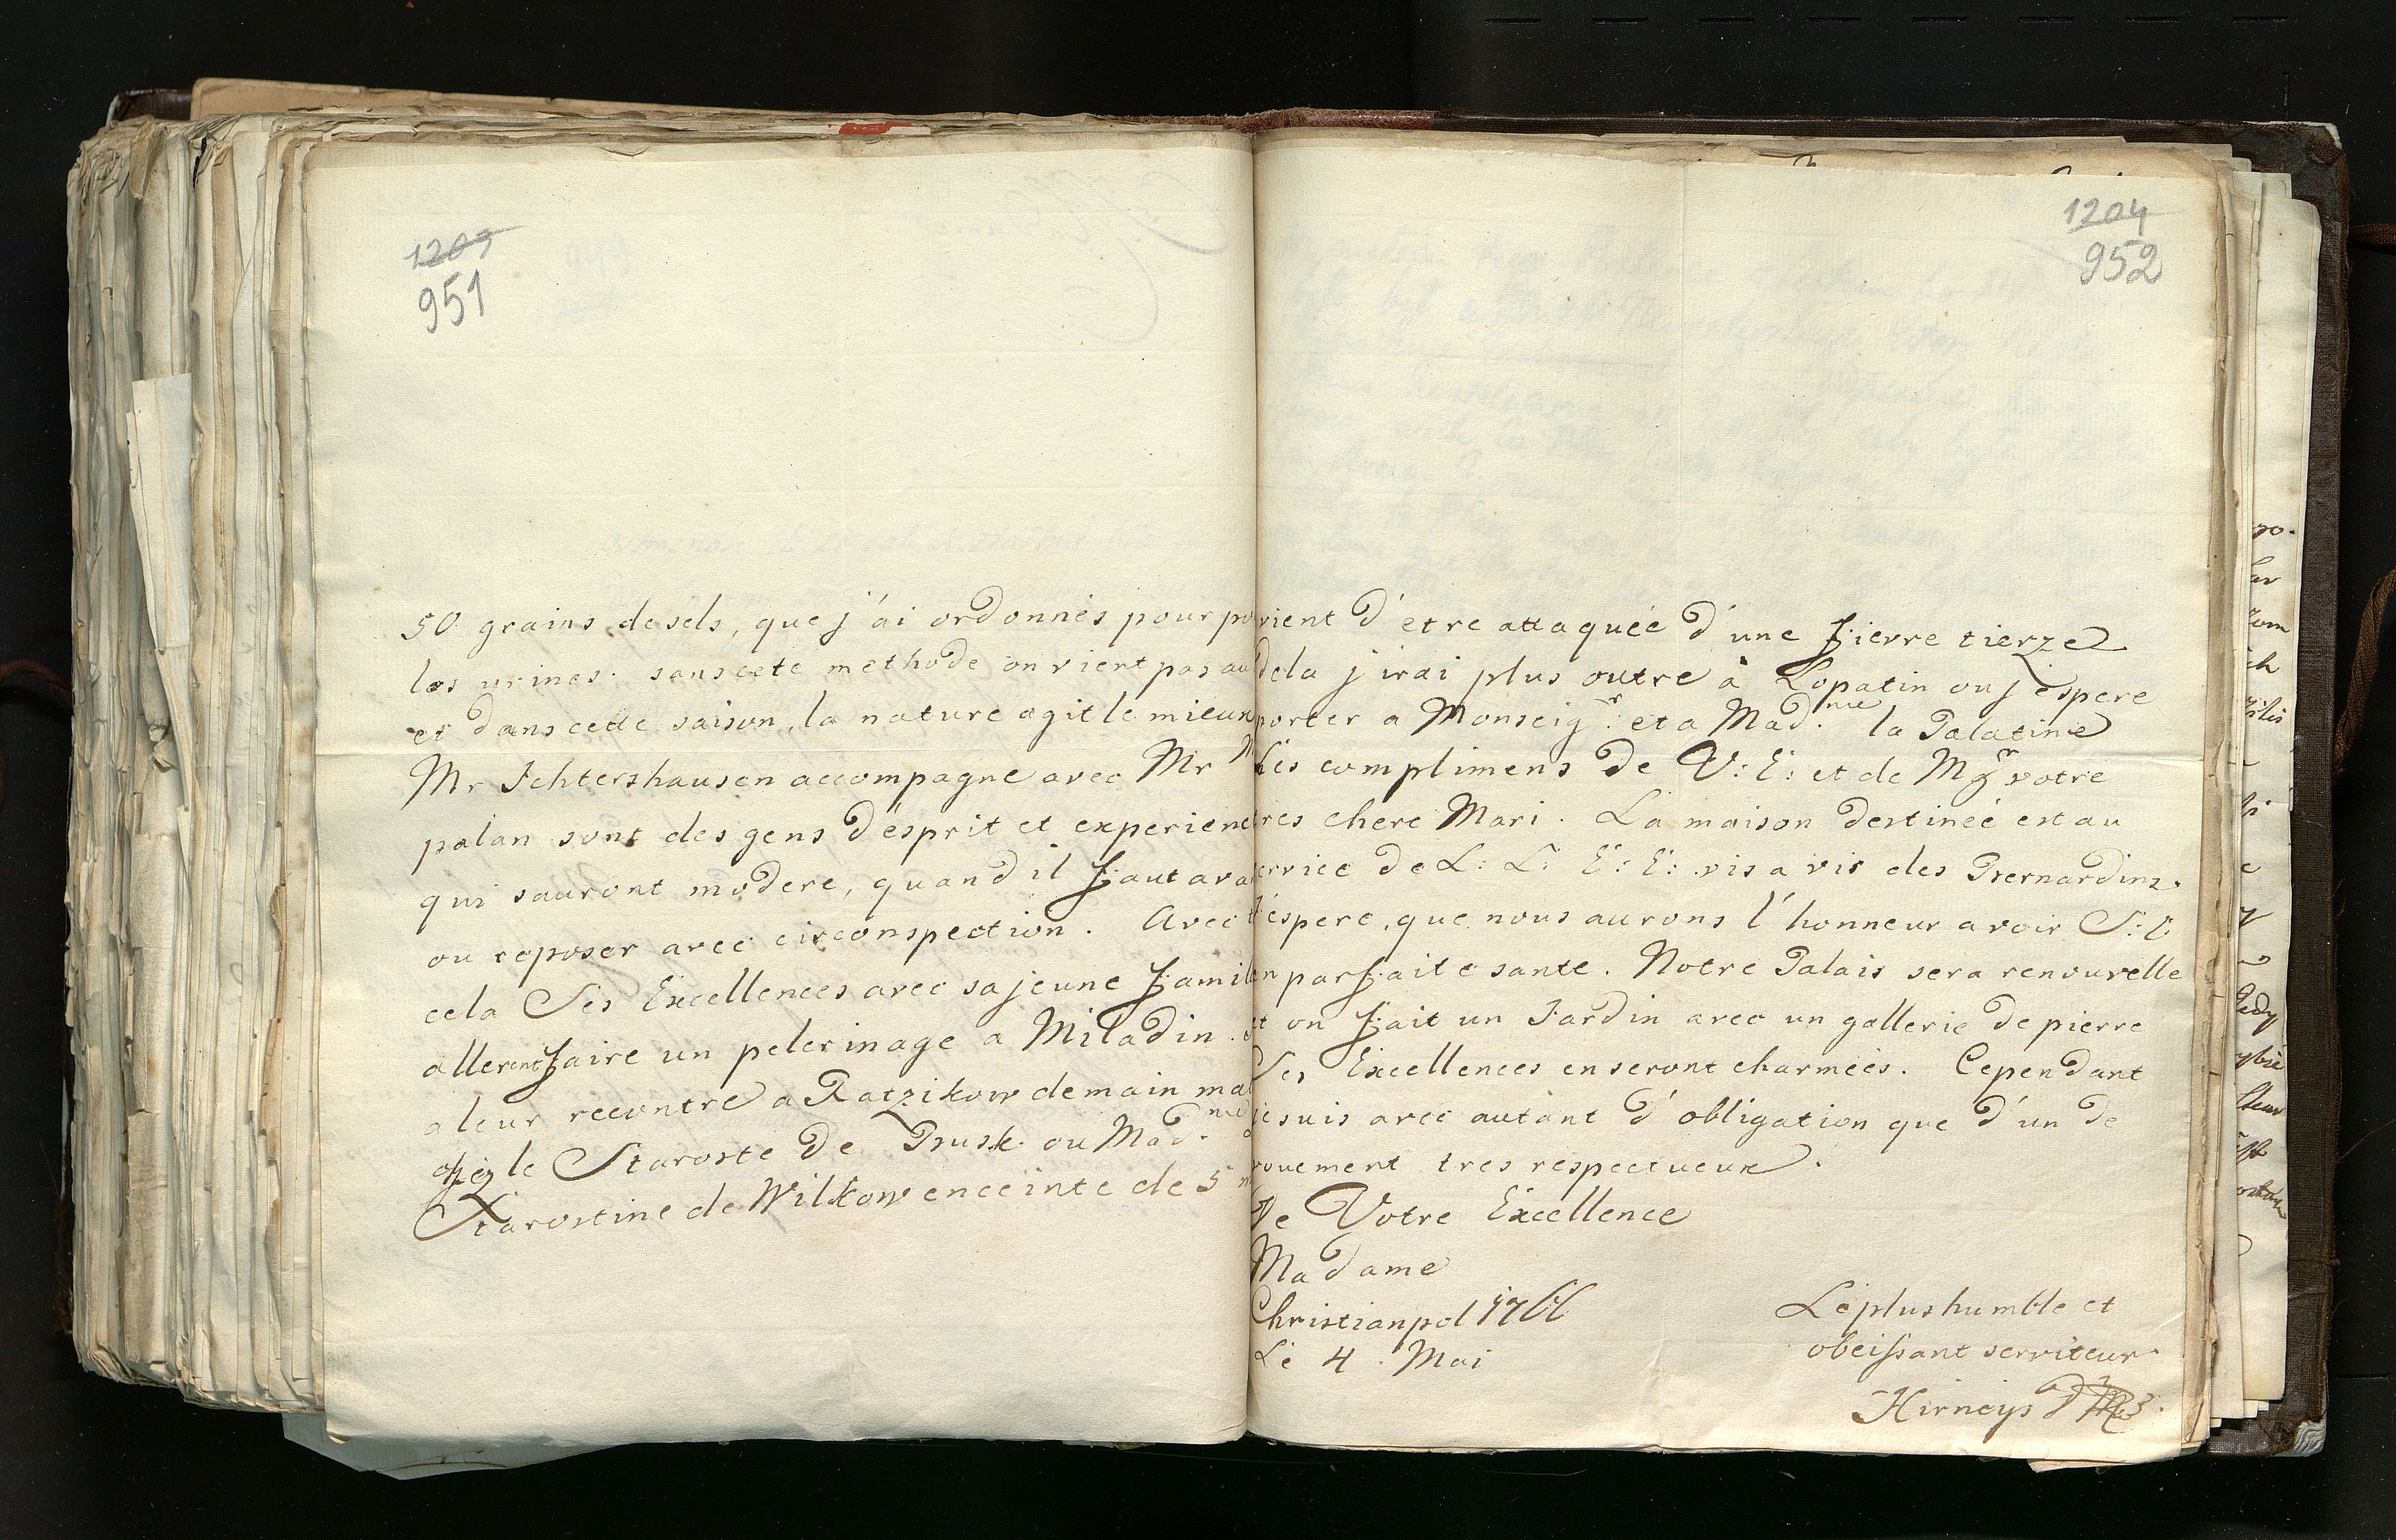 1203
951
50 grains de sels, que j'ai ordonnés pour po
les urines. sans cete methode on vient pas au
et dans cette saison, la nature agit le mieux
Mr Ichtershausen accompagne avec Mr
palan sont des gens d'ésprit et experienc
qui sauront modere, quand il faut ava
ou reposer avec circonspection. Avec
cela Ses Excellences avec sa jeune famil
allerent faire un pelerinage a Miladin.
a leur recontre a Ratzikow demain mat
chéz le Staroste de Prusk. ou Mad.me
Starostine de Wilkow enceinte de 5 m
1204
952
vient d'etre attaquée d'une fievre tierze
dela j'irai plus outre à Lopatin ou j'espere
porter a Monseigr. et a Mad.me la Palatine
les complimens de V: E: et de Mgr votre
tres chere Mari. La maison destinée est au
service de L: L: E: E: vis a vis des Bernardins.
J'éspere, que nous aurons l'honneur a voir S: E:
en parfaite sante. Notre Palais sera renouvelle
et on fait un Jardin avec un gallerie de pierre
Ses Excellences en seront charmées. Cependant
je suis avec autant d'obligation que d'un de
vouement tres respectueux.
De Votre Excellence
Madame
Christianpol 1766
Le 4. Mai
Le plus humble et
obeissant serviteur
Hirneys